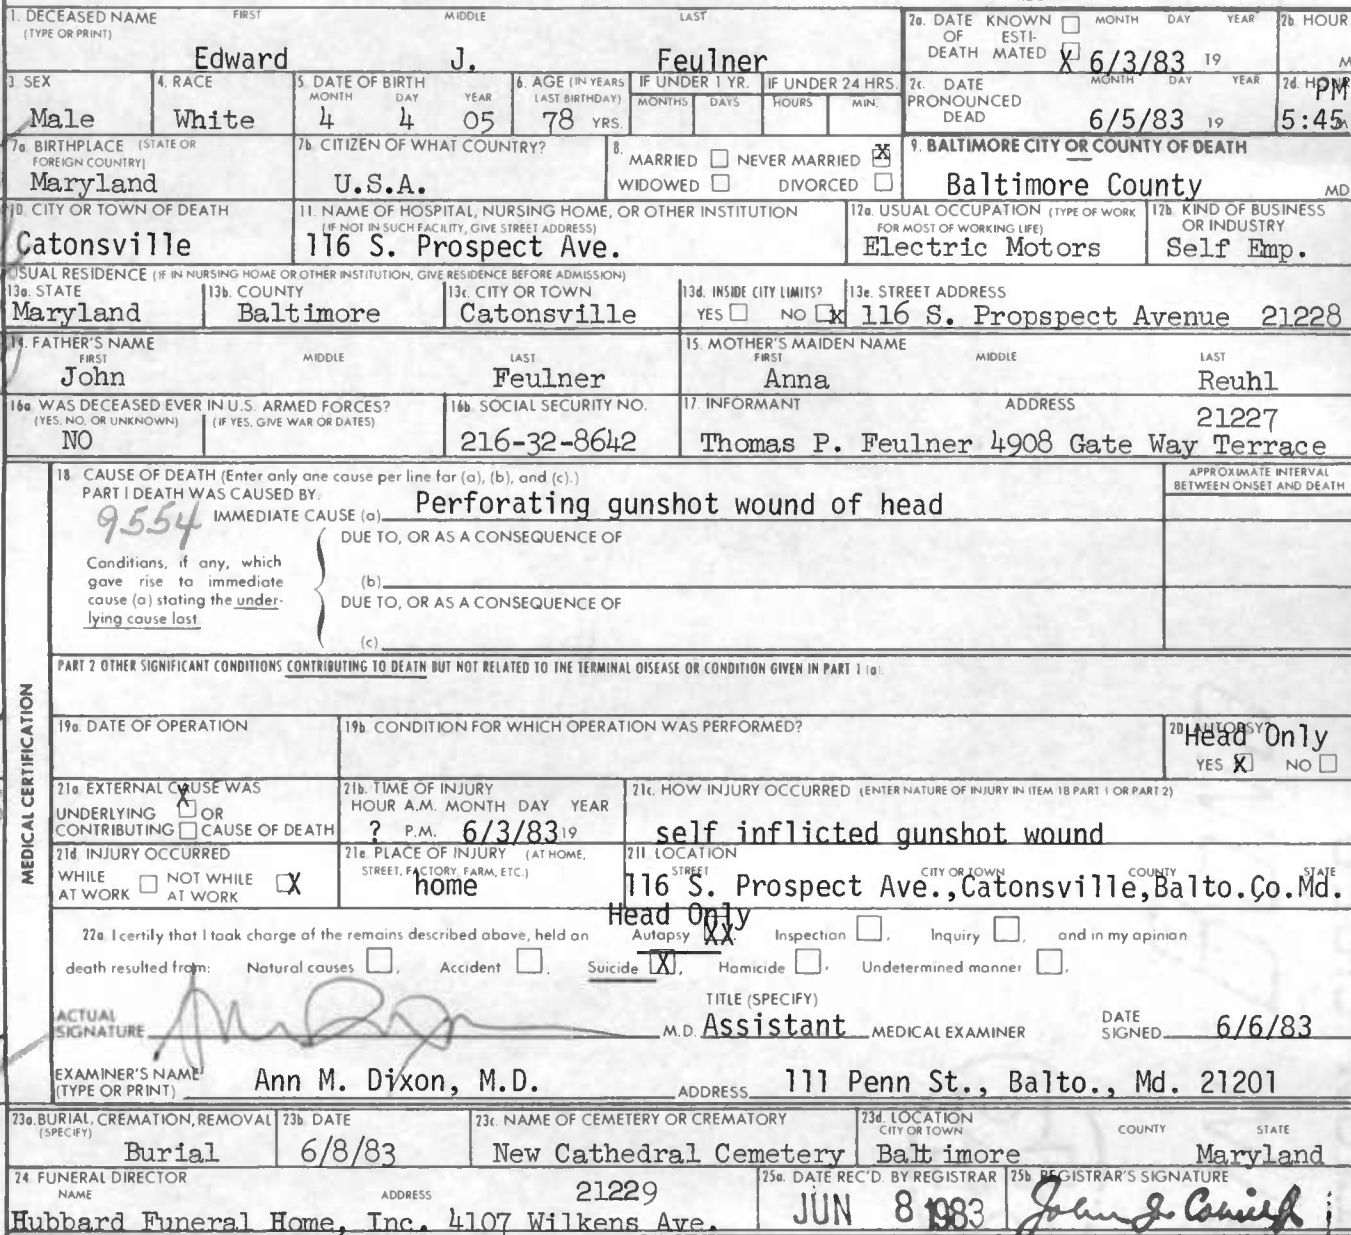 1. DECEASED NAME FIRST MIDDLE LAST
(TYPE OR PRINT)
Edward J. Feulner
2a. DATE KNOWN ☐ MONTH DAY YEAR
OF ESTI-
DEATH MATED X 6/3/83 19
2b. HOUR
M
3 SEX
Male
4. RACE
White
5 DATE OF BIRTH
MONTH DAY YEAR
4 4 05
6. AGE (IN YEARS
LAST BIRTHDAY)
78 YRS.
IF UNDER 1 YR.
MONTHS DAYS
IF UNDER 24 HRS.
HOURS MIN.
2c. DATE MONTH DAY YEAR
PRONOUNCED
DEAD 6/5/83 19
2d. HOUR PM
5:45
7a. BIRTHPLACE (STATE OR
FOREIGN COUNTRY)
Maryland
7b. CITIZEN OF WHAT COUNTRY?
U.S.A.
8.
MARRIED ☐ NEVER MARRIED X
WIDOWED ☐ DIVORCED ☐
9. BALTIMORE CITY OR COUNTY OF DEATH
Baltimore County MD
10. CITY OR TOWN OF DEATH
Catonsville
11. NAME OF HOSPITAL, NURSING HOME, OR OTHER INSTITUTION
(IF NOT IN SUCH FACILITY, GIVE STREET ADDRESS)
116 S. Prospect Ave.
12a. USUAL OCCUPATION (TYPE OF WORK
FOR MOST OF WORKING LIFE)
Electric Motors
12b. KIND OF BUSINESS
OR INDUSTRY
Self Emp.
USUAL RESIDENCE (IF IN NURSING HOME OR OTHER INSTITUTION, GIVE RESIDENCE BEFORE ADMISSION)
13a. STATE
Maryland
13b. COUNTY
Baltimore
13c. CITY OR TOWN
Catonsville
13d. INSIDE CITY LIMITS?
YES ☐ NO X
13e. STREET ADDRESS
116 S. Propspect Avenue 21228
14. FATHER'S NAME
FIRST MIDDLE LAST
John Feulner
15. MOTHER'S MAIDEN NAME
FIRST MIDDLE LAST
Anna Reuhl
16a. WAS DECEASED EVER IN U.S. ARMED FORCES?
(YES, NO, OR UNKNOWN) (IF YES, GIVE WAR OR DATES)
NO
16b. SOCIAL SECURITY NO.
216-32-8642
17. INFORMANT ADDRESS
21227
Thomas P. Feulner 4908 Gate Way Terrace
MEDICAL CERTIFICATION
18. CAUSE OF DEATH (Enter only one cause per line for (a), (b), and (c).)
PART I DEATH WAS CAUSED BY:
9554 IMMEDIATE CAUSE (a) Perforating gunshot wound of head
APPROXIMATE INTERVAL
BETWEEN ONSET AND DEATH
DUE TO, OR AS A CONSEQUENCE OF
Conditions, if any, which
gave rise to immediate
cause (a) stating the under-
lying cause last
(b)
DUE TO, OR AS A CONSEQUENCE OF
(c)
PART 2 OTHER SIGNIFICANT CONDITIONS CONTRIBUTING TO DEATH BUT NOT RELATED TO THE TERMINAL DISEASE OR CONDITION GIVEN IN PART 1 (a).
19a. DATE OF OPERATION
19b. CONDITION FOR WHICH OPERATION WAS PERFORMED?
20. AUTOPSY?
Head Only
YES X NO ☐
21a. EXTERNAL CAUSE WAS
UNDERLYING X OR
CONTRIBUTING ☐ CAUSE OF DEATH
21b. TIME OF INJURY
HOUR A.M. MONTH DAY YEAR
? P.M. 6/3/83 19
21c. HOW INJURY OCCURRED (ENTER NATURE OF INJURY IN ITEM 18 PART 1 OR PART 2)
self inflicted gunshot wound
21d. INJURY OCCURRED
WHILE ☐ NOT WHILE X
AT WORK AT WORK
21e. PLACE OF INJURY (AT HOME,
STREET, FACTORY, FARM, ETC.)
home
21f. LOCATION
STREET CITY OR TOWN COUNTY STATE
116 S. Prospect Ave.,Catonsville,Balto.Co.Md.
Head Only
22a. I certify that I took charge of the remains described above, held an Autopsy XX. Inspection ☐, Inquiry ☐, and in my opinion
death resulted from: Natural causes ☐, Accident ☐, Suicide X, Homicide ☐, Undetermined manner ☐,
TITLE (SPECIFY)
ACTUAL
SIGNATURE M.D. Assistant MEDICAL EXAMINER
DATE
SIGNED 6/6/83
EXAMINER'S NAME
(TYPE OR PRINT) Ann M. Dixon, M.D. ADDRESS 111 Penn St., Balto., Md. 21201
23a. BURIAL, CREMATION, REMOVAL
(SPECIFY)
Burial
23b. DATE
6/8/83
23c. NAME OF CEMETERY OR CREMATORY
New Cathedral Cemetery
23d. LOCATION
CITY OR TOWN COUNTY STATE
Balt imore Maryland
24 FUNERAL DIRECTOR
NAME ADDRESS 21229
Hubbard Funeral Home, Inc. 4107 Wilkens Ave.
25a. DATE REC'D. BY REGISTRAR
JUN 8 1983
25b. REGISTRAR'S SIGNATURE
John J.